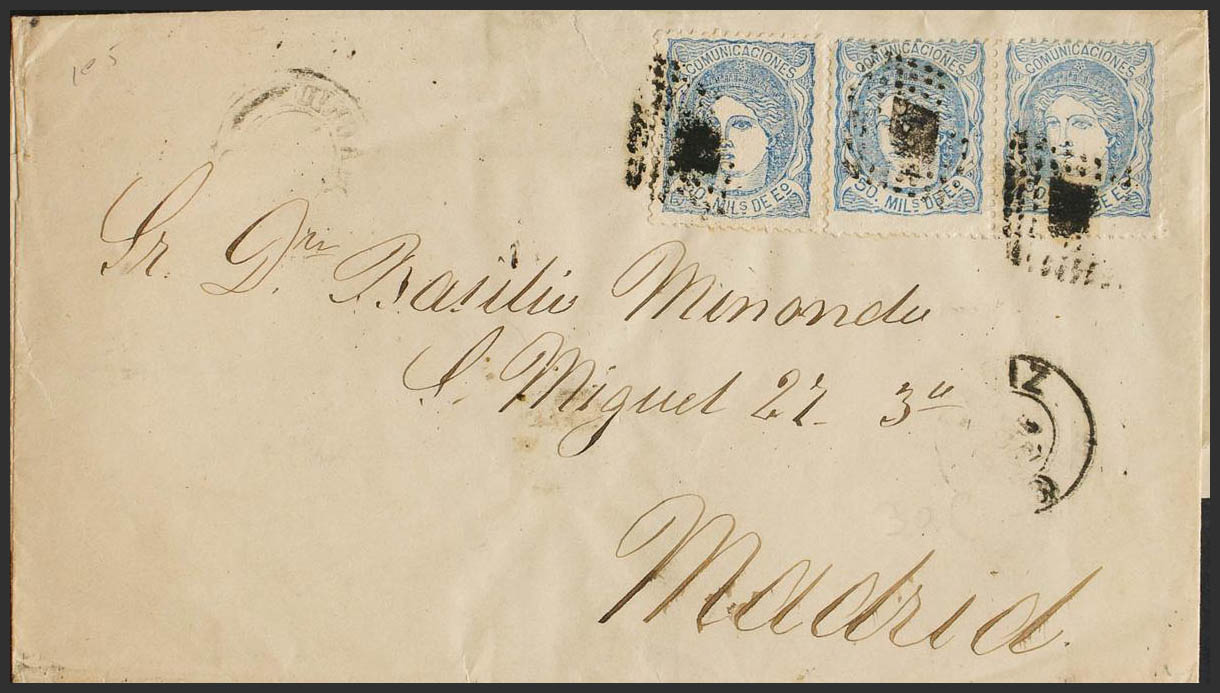 COMUNICACIONES COMUNICACIONES COMUNICACIONES
50. MILs DE Eo. 50. MILs DE Eo. DE Eo.
Sr. Dn Basilio Minondo
S. Miguel 27 3o
Madrid.